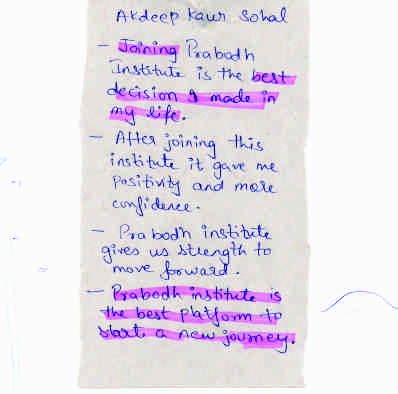 Akdeep Kaur Sohal
- Joining Prabodh
Institute is the best
decision I made in
my life.
- After joining this
institute it gave me
Positivity and more
confidence.
- Prabodh institute
gives us strength to
move forward.
- Prabodh institute is
the best platform to
start a new journey.